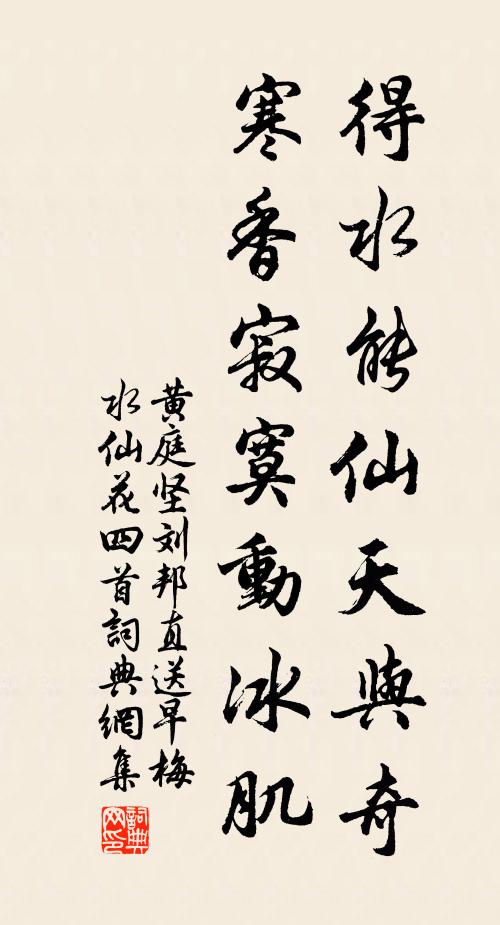 得水能仙天與奇
寒香寂寞動冰肌
黄庭坚刘邦直送早梅
水仙花四首詞典網集
詞典
网印